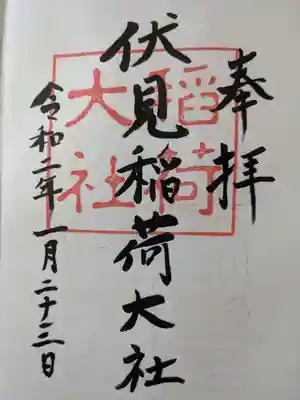 奉拝
伏見稲荷大社
稲荷
大社
令和二年一月二十三日